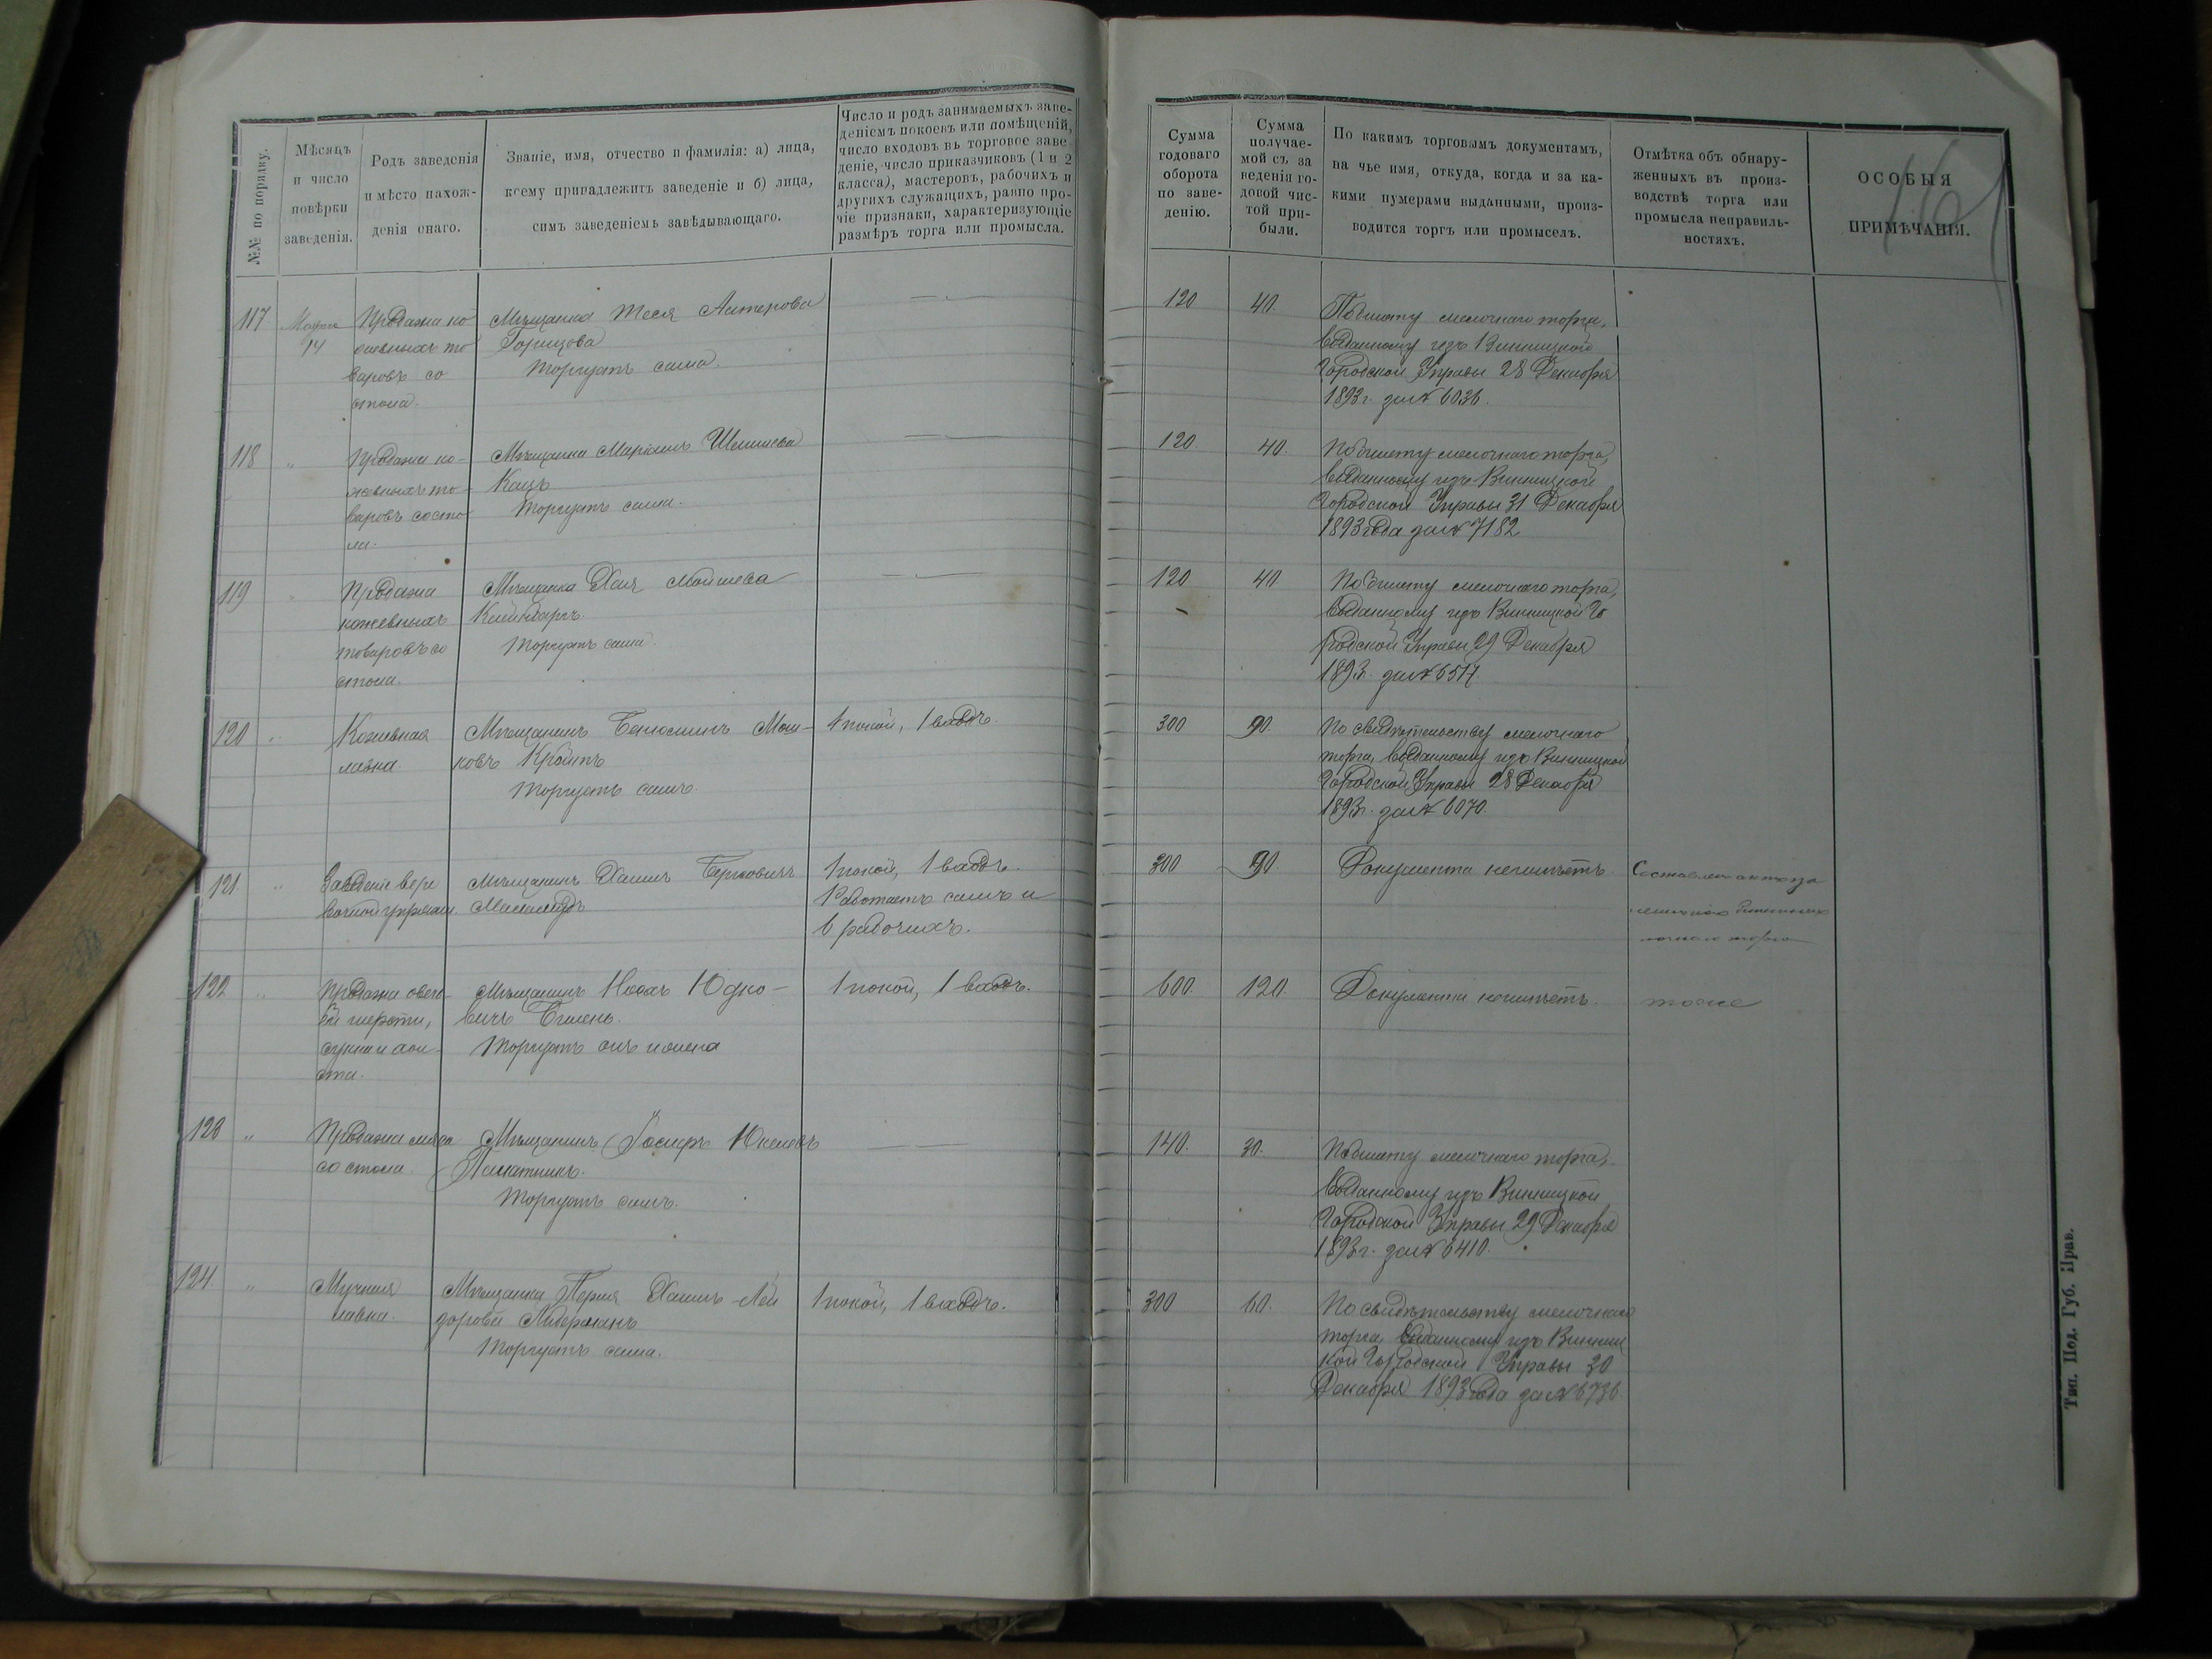 №№ по порядку.
Мѣсяцъ
и число
повѣрки
заведенія.
Родъ заведенія
и мѣсто нахож-
денія онаго.
Званіе, имя, отчество и фамилія: а) лица,
коему принадлежитъ заведеніе и б) лица,
симъ заведеніемъ завѣдывающаго.
Число и родъ занимаемыхъ заве-
деніемъ покоевъ или помѣщеній,
число входовъ въ торговое заве
деніе, число приказчиковъ (1 и 2
класса), мастеровъ, рабочихъ и
другихъ служащихъ, равно про-
чіе признаки, характеризующіе
размѣръ торга или промысла.
Сумма
годоваго
оборота
по заве-
денію.
Сумма
получае-
мой съ за
веденія го-
довой чис-
той при-
были.
По какимъ торговымъ документамъ,
на чье имя, откуда, когда и за ка-
кими нумерами выданными, произ-
водится торгъ или промыселъ.
Отмѣтка объ обнару-
женныхъ въ произ-
водствѣ торга или
промысла неправиль-
ностяхъ.
ОСОБЫЯ
ПРИМѢЧАНІЯ.
117
Марта
14
Продажа ко
жевныхъ то
варовъ со
стола.
Мѣщанка Теся
Торгуетъ сама.
120
40.
По билету мелочнаго торга,
выданному изъ Винницкой
Городской Управы 28 Декабря
1893 г. за № 6036.
118
"
Продажа ко-
жевныхъ то-
варовъ со сто
ла.
Мѣщанка
Кацъ
Торгуетъ сама.
120.
40.
По билету мелочнаго торга,
выданному изъ Винницкой
Городской Управы 31 Декабря
1893 года за № 7182
119
"
Продажа
кожевныхъ
товаровъ со
стола.
Мѣщанка Хая Мошкова
Торгуетъ сама.
120
40
По билету мелочнаго торга,
выданному изъ Винницкой Го
родской Управы 29 Декабря
1893г. за №
120
"
Кожевная
лавка
Мѣщанинъ Беньюминъ Мош-
ковъ
Торгуетъ самъ.
1 покой, 1 входъ.
300
90.
По свидѣтельству мелочнаго
торга, выданному изъ Винницкой
Городской Управы 28 Декабря
1893г. за № 6070.
121
"
Заведеніе вере
вочной упряжи.
Мѣщанинъ Хаимъ Берковичъ
1 покой, 1 входъ.
Работаетъ самъ и
6 рабочихъ.
300
90.
Документа неимѣетъ.
Составленъ актъ за
122
"
Продажа овеч-
ей шерсти,
сукна и хол-
ста.
Мѣщанинъ
Торгуетъ онъ и жена
1 покой, 1 входъ.
600.
120.
Документа неимѣетъ.
тоже
123
"
Продажа мяса
со стола.
Мѣщанинъ
Торгуетъ самъ.
140.
30.
По билету мелочнаго торга,
выданному изъ Винницкой
Городской Управы 29 Декабря
1893г. за № 6410.
124
"
Мучная
лавка.
Мѣщанка Перля Хаимъ-Лей
зорова Лидерманъ
Торгуетъ сама.
1 покой, 1 входъ.
300
60.
По свидѣтельству мелочнаго
торга, выданному изъ Винниц
кой Городской Управы 30
Декабря 1893 года за № 6736.
Тип. Под. Губ. Прав.